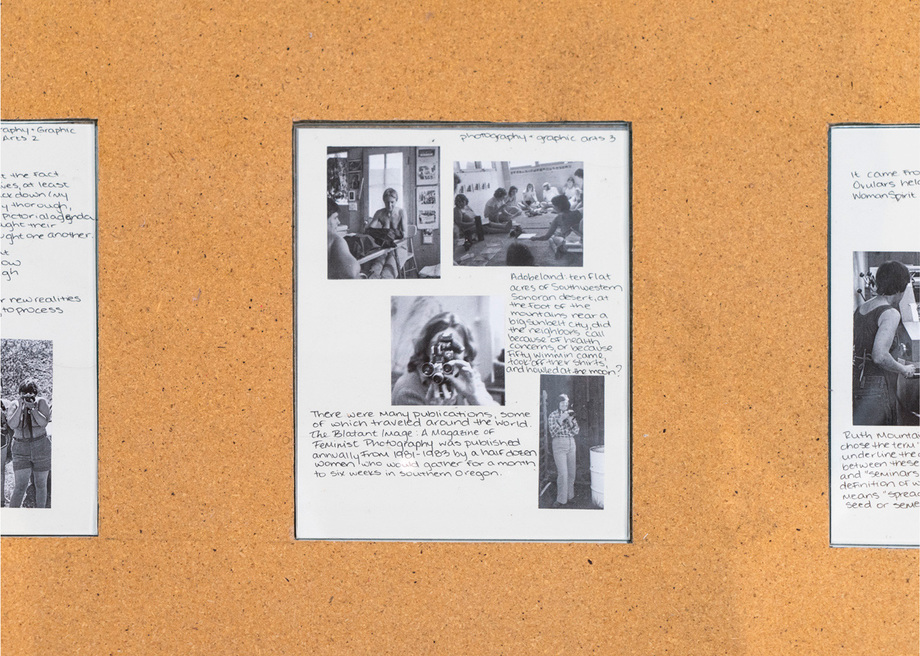 raphy + Graphic
Arts 2
t the fact
ives, at least
ck down (my
y thorough,
Pictorial agenda
ught their
ught one another.
t
ow
gh
r new realities
, to process
photography + graphic arts 3
Adobeland: ten flat
acres of Southwestern
Sonoran desert, at
the foot of the
mountains near a
big sunbelt city, did
the neighbors call
because of health
concerns, or because
fifty wimmin came,
took off their shirts,
and howled at the moon?
There were many publications, some
of which traveled around the world.
The Blatant Image: A Magazine of
Feminist Photography was published
annually from 1981-1983 by a half dozen
women, who would gather for a month
to six weeks in southern Oregon.
It came fro
Ovulars hel
WomanSpirit
Ruth Mounta
chose the term
underline the c
between these
and "seminars
definition of w
means "sprea
seed or seme